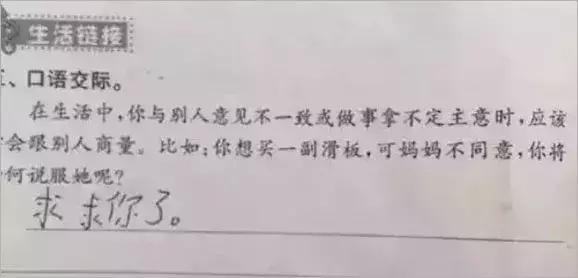 生活链接
三、口语交际。
在生活中，你与别人意见不一致或做事拿不定主意时，应该
会跟别人商量。比如：你想买一副滑板，可妈妈不同意，你将
何说服她呢？
求求你了。